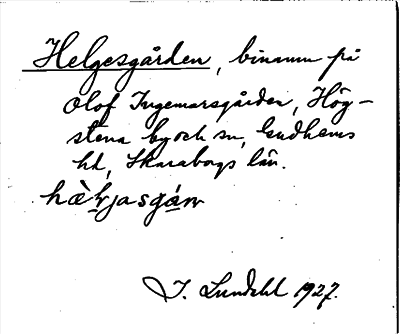 Helgesgården, binamn på
Olof Ingemarsgården, Hög-
stena by och sn, Gudhems
hd, Skaraborgs län.
hὰljasgάṇ
J. Lundahl 1927.